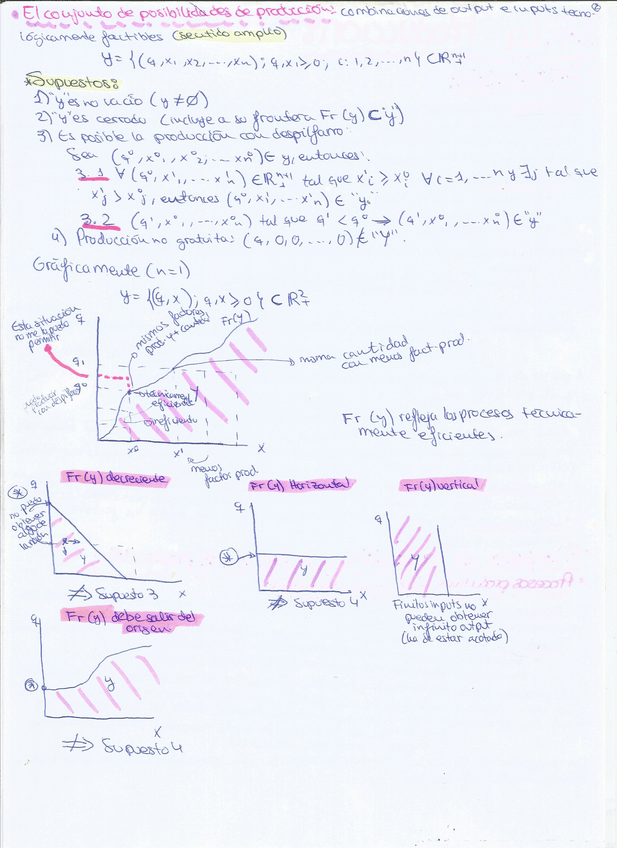 El conjunto de posibilidades de producción: combinaciones de output e inputs tecno-
lógicamente factibles (sentido amplio)
y = {(q, x1, x2, ..., xn); q, xi ≥ 0, i: 1, 2, ... n} ⊂ ℝ₊ⁿ⁺¹
*Supuestos:
1) "y" es no vacío (y ≠ ∅)
2) "y" es cerrado (incluye a su frontera Fr(y) ⊂ "y")
3) Es posible la producción con despilfarro:
Sea (q⁰, x⁰₁, x⁰₂, ... x⁰n) ∈ y, entonces:
3.1 ∀(q⁰, x'₁, ... x'n) ∈ ℝ₊ⁿ⁺¹ tal que x'i ≥ x⁰i ∀i=1, ... n y ∃j tal que
x'j > x⁰j, entonces (q⁰, x'₁, ... x'n) ∈ "y"
3.2 (q', x⁰₁, ... x⁰n) tal que q' < q⁰ → (q', x⁰₁, ... x⁰n) ∈ "y"
4) Producción no gratuita: (q, 0, 0, ..., 0) ∉ "y".
Gráficamente (n=1)
y = {(q, x); q, x ≥ 0} ⊂ ℝ²₊
Esta situación
no me la puedo
permitir
q
mismos factores
prod. y + cantidad
Fr(y)
misma cantidad
con menos fact. prod.
q1
q0
técnicamente
eficiente
y
ineficiente
x0
x1
x
menos
factor prod.
Fr(y) refleja los procesos técnica-
mente eficientes.
Fr(y) decreciente
Fr(y) Horizontal
Fr(y) vertical
q
no puedo
obtener
algo de
la nada
y
x
⇏ Supuesto 3
q
y
x
⇏ Supuesto 4
q
y
x
Finitos inputs no
pueden obtener
infinito output
(ha de estar acotado)
Fr(y) debe salir del
origen
q
y
x
⇏ Supuesto 4